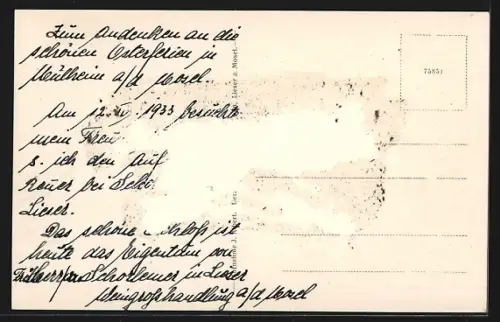 Zum Andenken an die
schönen Osterferien in
Mülheim a/d Mosel.
Am 12. 1933 besuchte
mein Freu
s. ich den Auf
bei
Lieser.
Das schöne Schloß ist
heute das Eigentum von
Schorlemer in Lieser
Weingroßhandlung a/d Mosel
Lieser a. Mosel.
75851